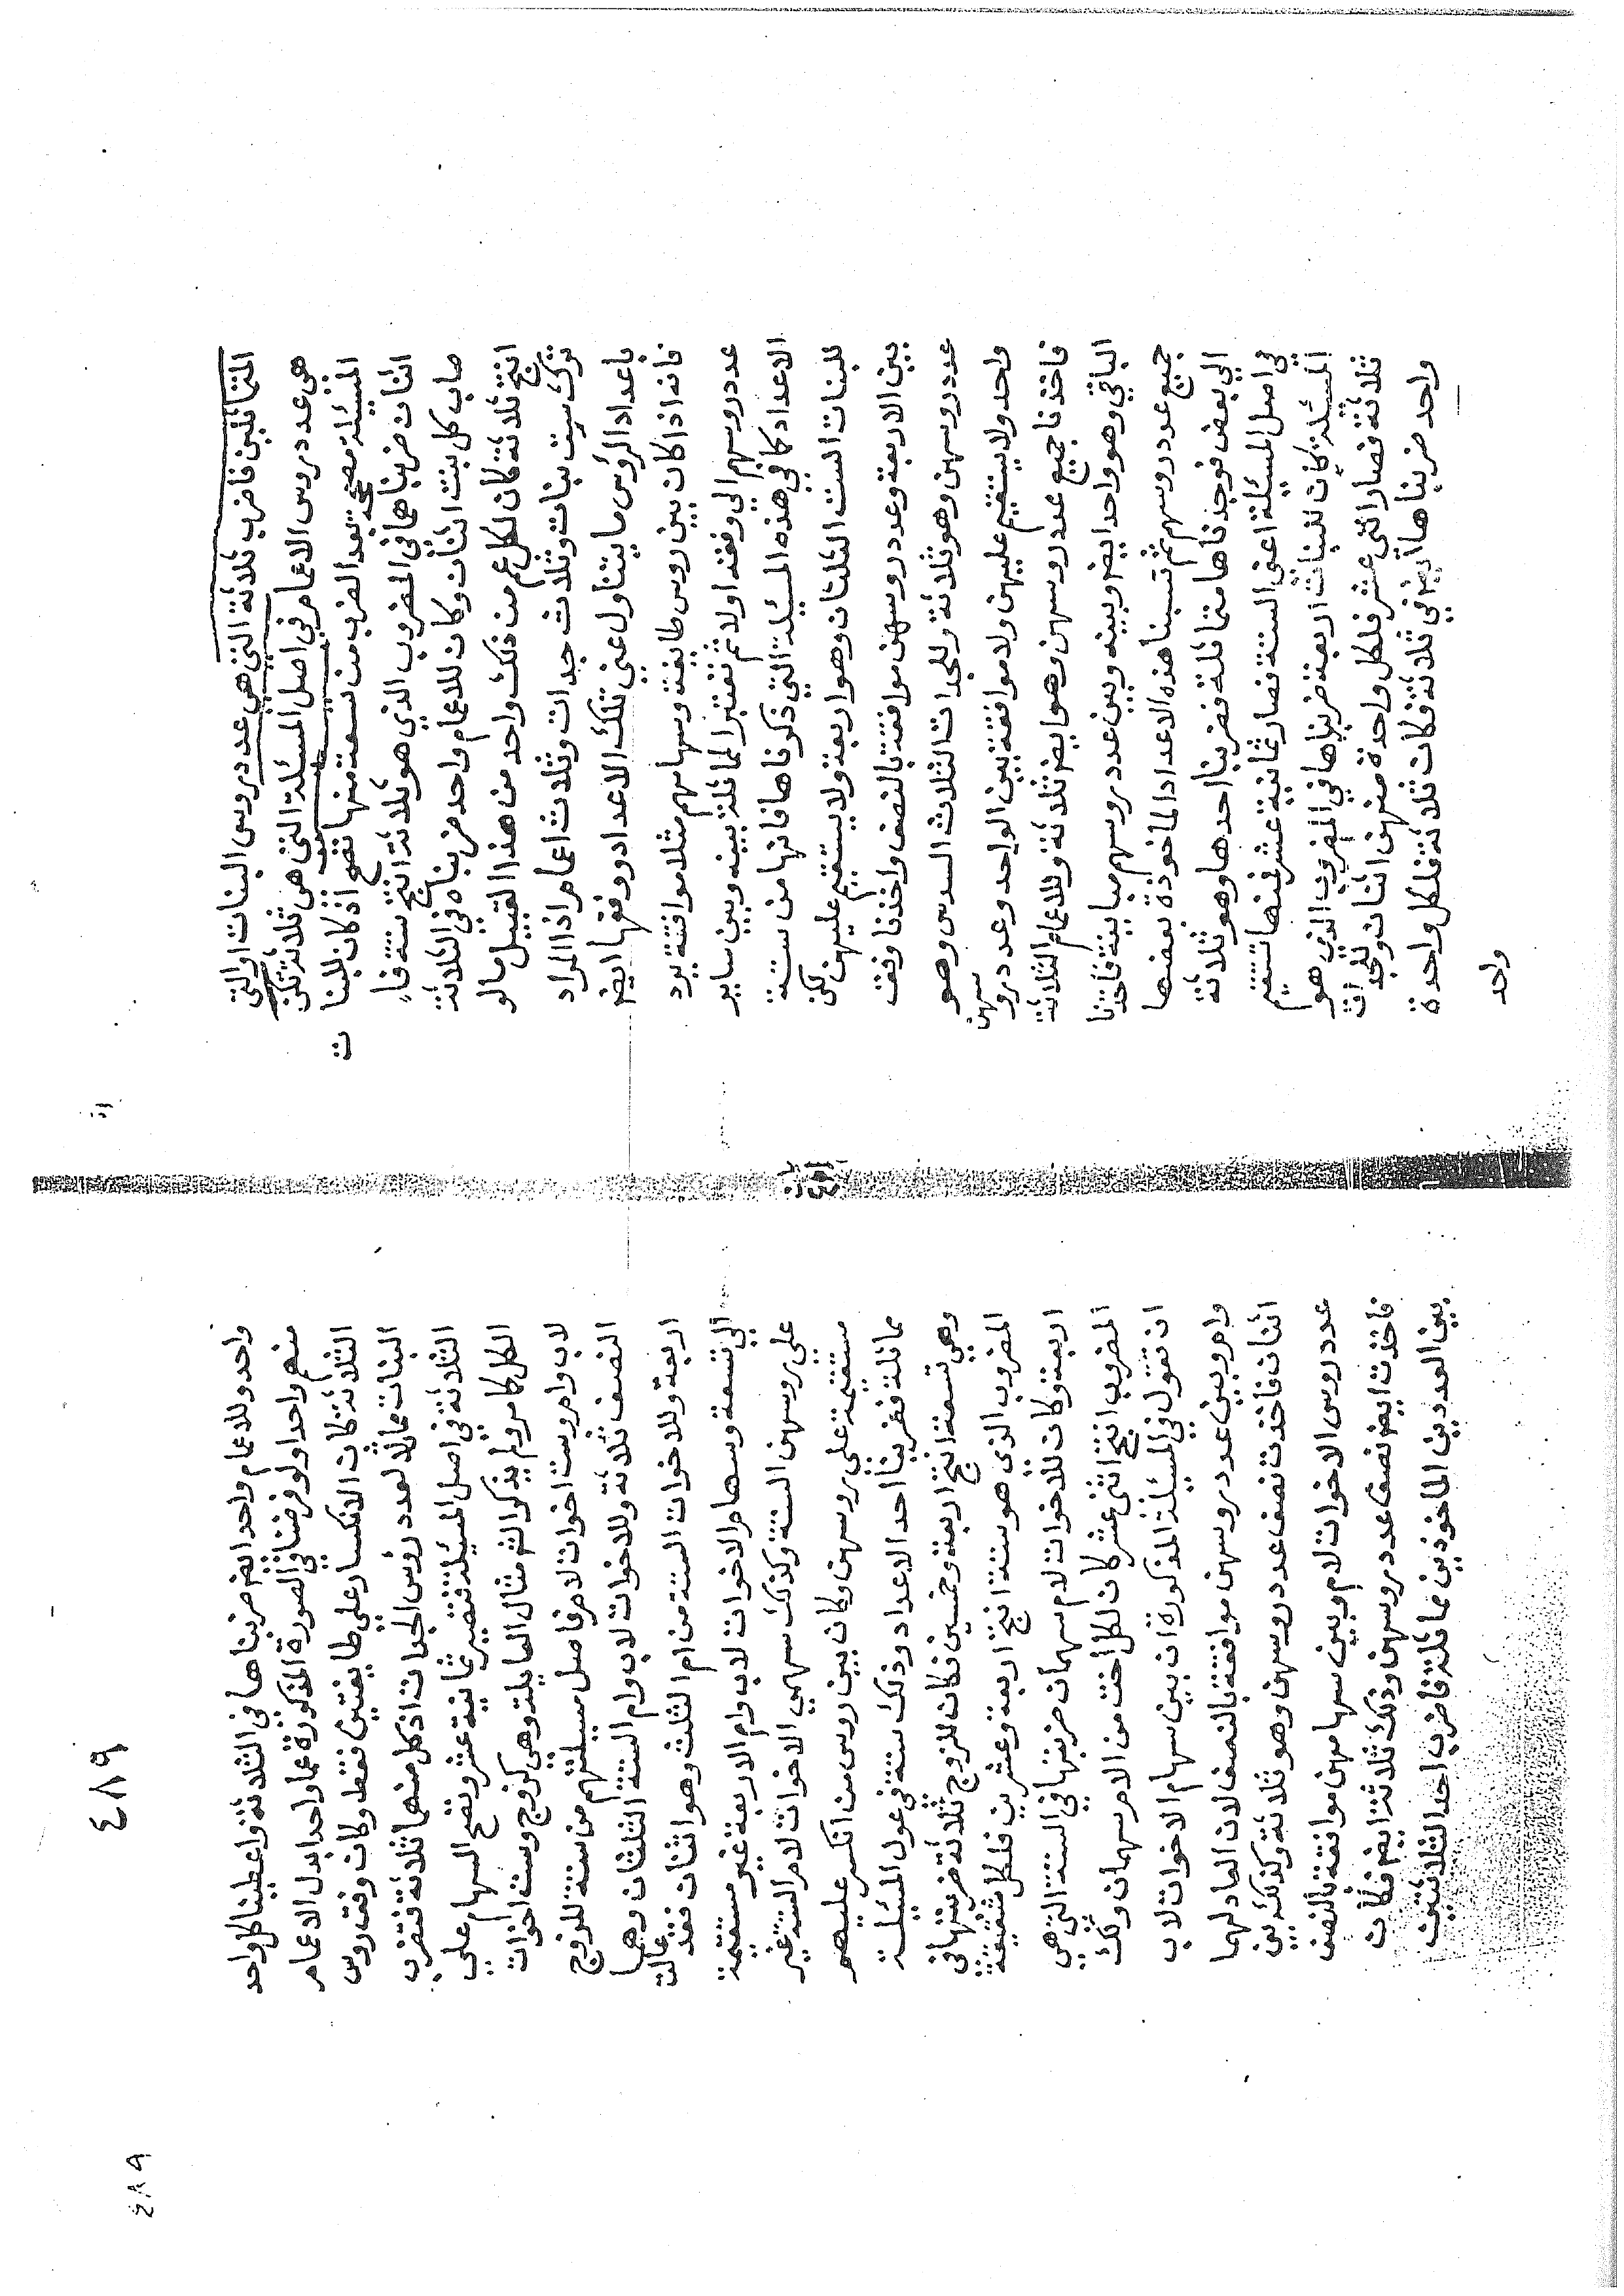 المتماثلين فاضرب ثلاثة التي هي عدد روس البنات او التي
هي عدد روس الاعمام في اصل المسئلة التي هي ثلاثة تكن
المسئلة مصححة بعد الضرب من تسعة منها تقع اذ كان للبنا
ت
اثنان ضربناهما في المضروب الذي هو ثلاثة انتج ستة فا
صاب كل بنت اثنان وكان للاعمام واحد ضربناه في الثلاثة
انتج ثلاثة كان لكل عم من ذلك واحد من هذا القبيل ما لو
ترك ست بنات وثلاث جدات وثلاث اعمام اذ المراد
باعداد الرؤس ما يتناول عني تلك الاعداد ووفقها ايض
فانه اذا كان بين روس طايفة وسهامهم مثلا موافقة يرد
عدد روسهم الي وفقه اولا ثم تعتبر المماثلة بينه وبين ساير
الاعداد كما في هذه المسيلة التي ذكرناها فانها من ستة
للبنات الست الثلثان وهو اربعة ولا يستقيم عليهن لكن
بين الاربعة وعدد روسهن موافقة بالنصف واخذنا وفق
عدد روسهن وهو ثلاثة وللجدات الثلاث السدس وهو
واحد ولا يستقيم عليهن ولا موافقة بين الواحد وعدد رو
سهن
فاخذنا جميع عدد روسهن وهو ايض ثلاثة وللاعمام الثلاثة
الباقي وهو واحد ايض وبينه وبين عدد روسهم مباينة فاخذنا
جميع عدد روسهم ثم نسبنا هذه الاعداد الماخوذة بعضها
الي بعض فوجدناها متماثلة فضربنا احدها وهو ثلاثة
في اصل المسيلة اعني الستة فصار ثمانية عشر فمنها تستقيم
المسئلة كان للبنات اربعة ضربناها في المضروب الذي هو
ثلاثة فصار اثني عشر فلكل واحدة منهن اثنان وللجدات
واحد ضربناها ايض في ثلاثة فكانت ثلاثة فلكل واحدة
واحد
٤٨٩
واحد وللاعمام واحد ايض ضربناها في الثلاثة واعطينا كل واحد
منهم واحدا ولو فرضنا في الصورة المذكورة عما واحدا بدل الاعمام
الثلاثة كان الانكسار علي طايفتين فقط وكان وفق روس
البنات مماثلا لعدد رؤس الجدات اذ كل منهما ثلاثة فتضرب
الثلاثة في اصل المسيلة فتصير ثمانية عشر وتصح السهام علي
الكل كما مر ولم يذكر الش مثال العايلة وهي كزوج وست اخوات
لاب وام وست اخوات لام فاصل مسيلتهم من ستة للزوج
النصف ثلاثة وللاخوات لاب وام الستة الثلثان وهما
اربعة وللاخوات الستة من ام الثلث وهو اثنان فقد عالت
الي تسعة وسهام الاخوات لاب وام الاربعة غير مستقيمة
علي روسهن الستة وكذلك سهمي الاخوات لام الستة غير
مستقيمة علي روسهن وكان بين روس من انكسر عليهم
مماثلة فضربنا احد الاعداد وذلك ستة في عول المسيلة
وهي تسعة انتج اربعة وخمسين فكان للزوج ثلاثة ضربتها في
المضروب الذي هو ستة انتج اربعة وعشرين فلكل شقيقة
اربعة وكان للاخوات لام سهمان ضربتها في الستة التي هي
المضروب انتج اثني عشر كان لكل اخت من الام سهمان ولك
ان تقول في المسيلة المذكورة ان بين سهام الاخوات لاب
وام وبين عدد روسهن موافقة بالنصف لان العاد لهما
اثنان فاخذت نصف عدد روسهن وهو ثلاثة وكذلك بين
عدد روس الاخوات لام وبين سهامهن موافقة بالنصف
فاخذت ايض نصف عدد روسهن وذلك ثلاثة ايض فكان
بين العددين الماخوذين مماثلة فاضرب احد الثلاثتين
٤٨٩